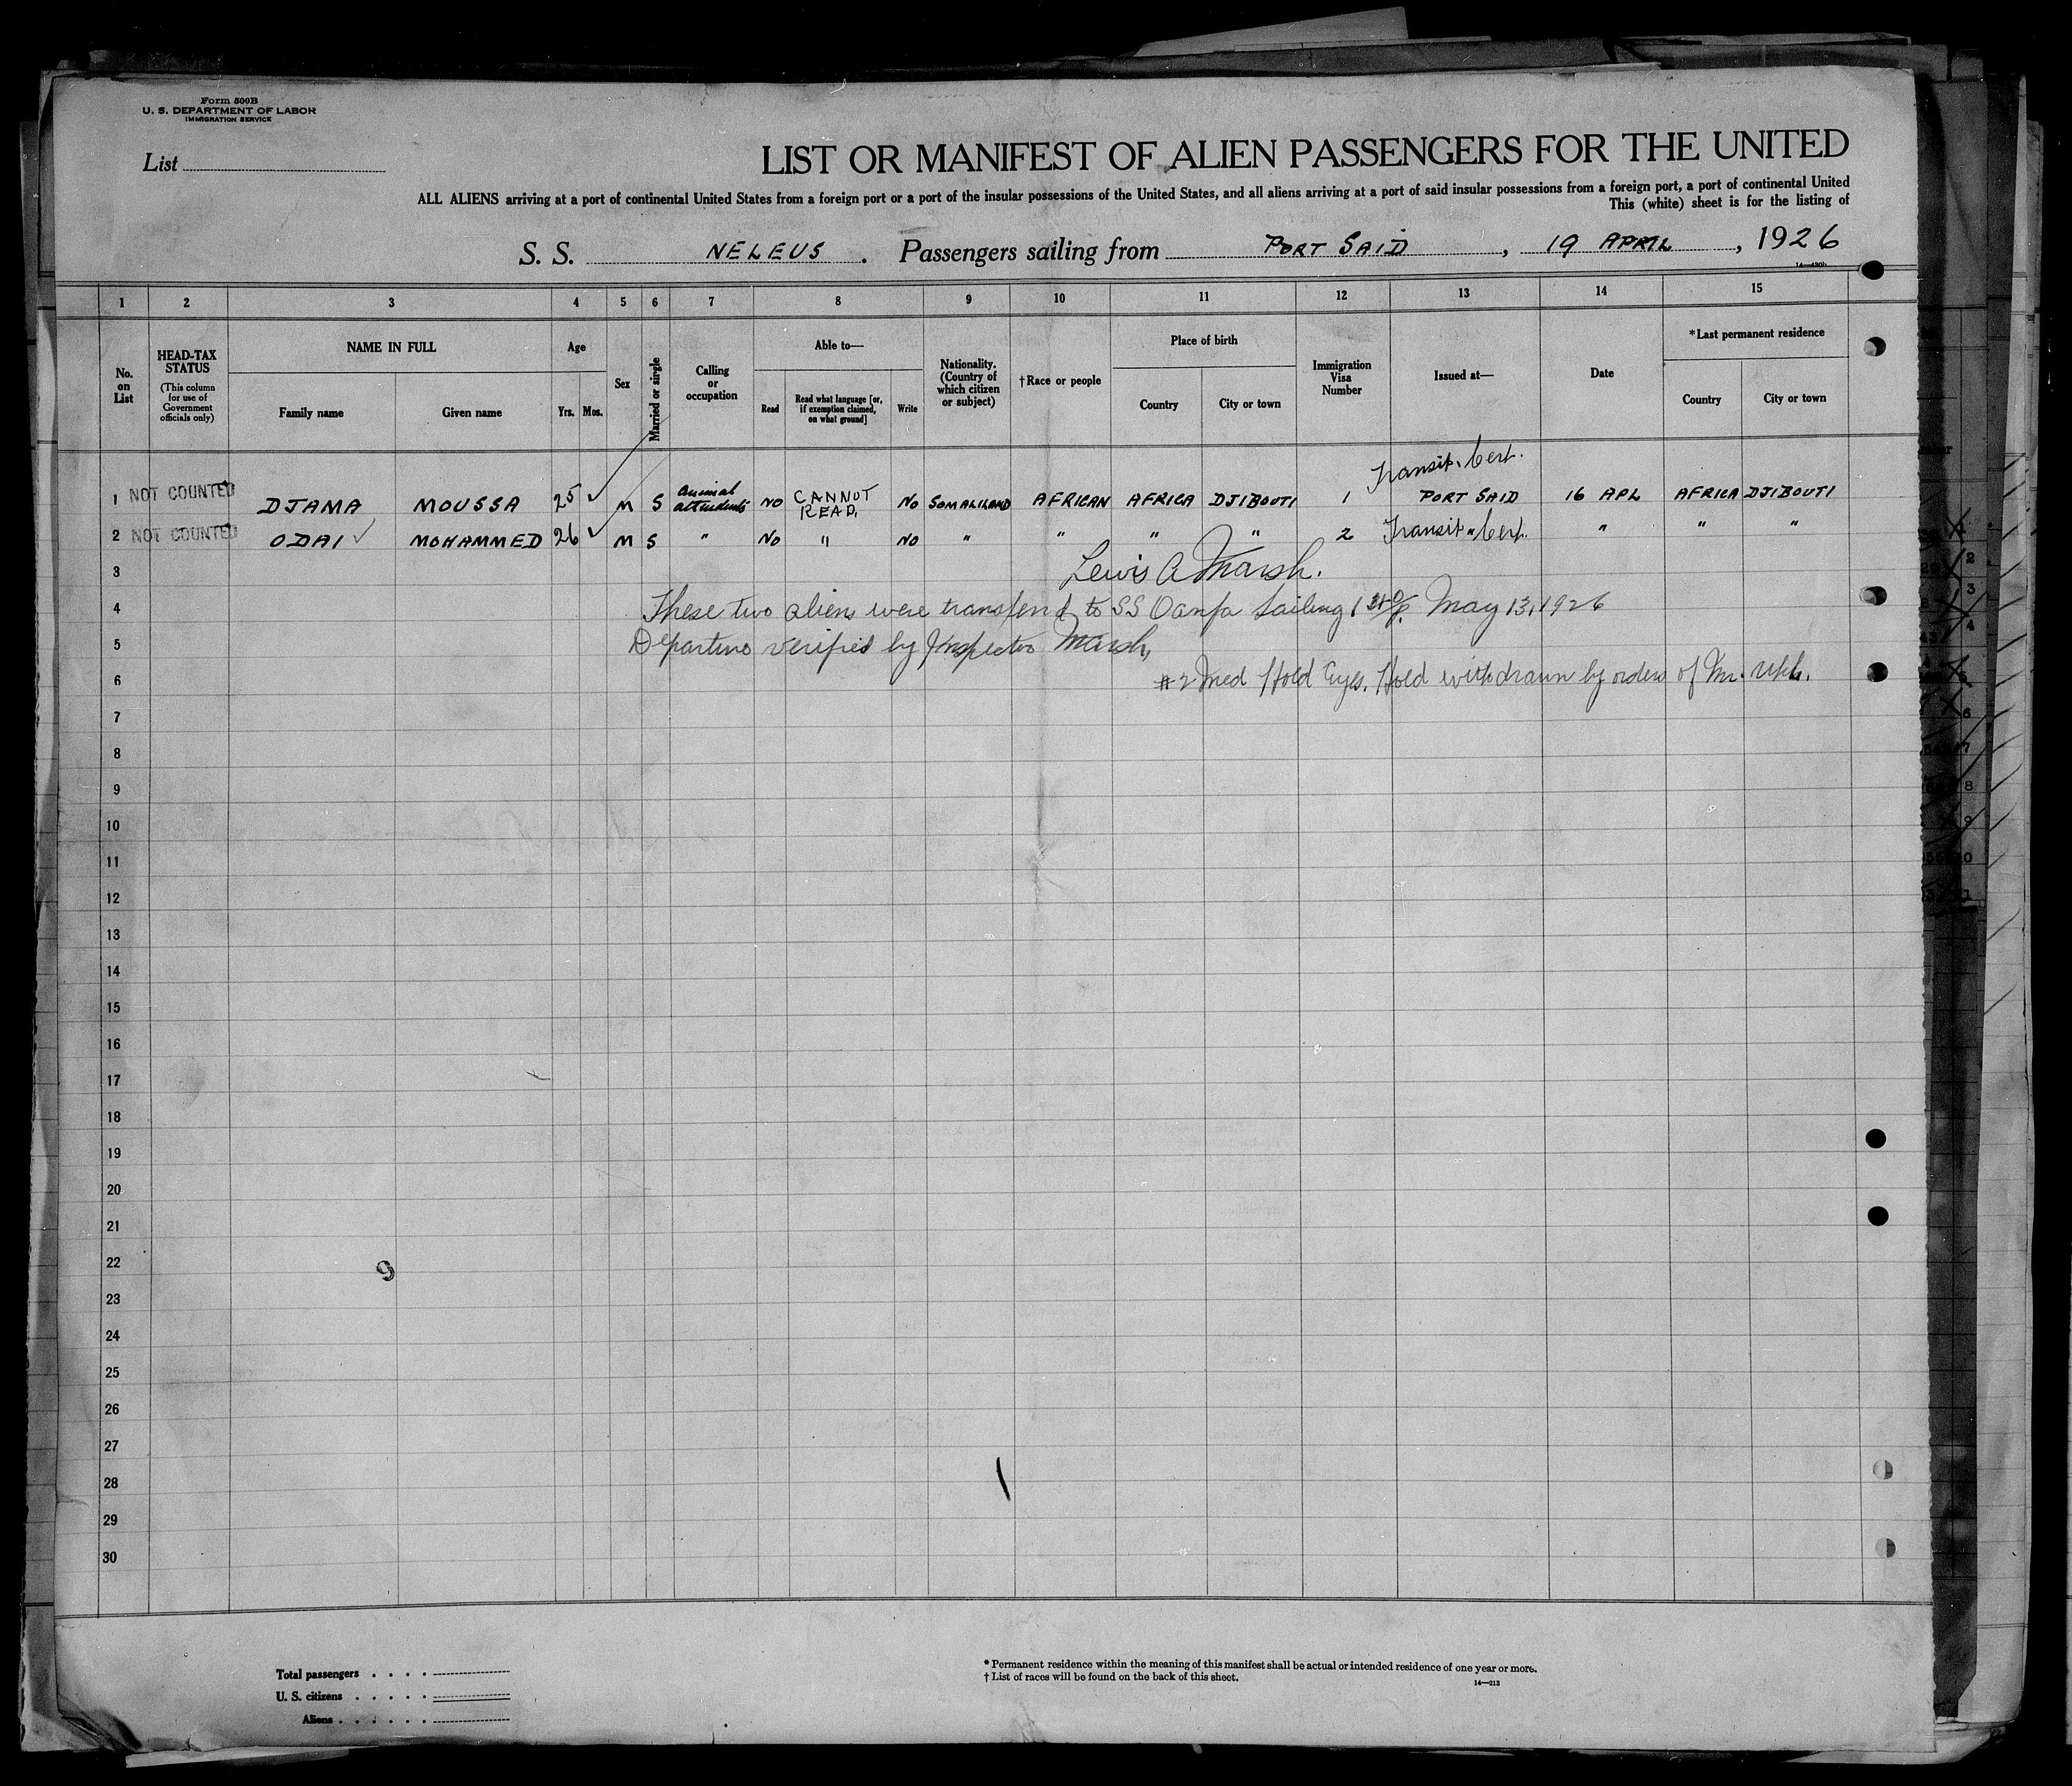 Form 500B
U. S. DEPARTMENT OF LABOR
IMMIGRATION SERVICE
List
LIST OR MANIFEST OF ALIEN PASSENGERS FOR THE UNITED
ALL ALIENS arriving at a port of continental United States from a foreign port or a port of the insular possessions of the United States, and all aliens arriving at a port of said insular possessions from a foreign port, a port of continental United
This (white) sheet is for the listing of
S. S. NELEUS . Passengers sailing from PORT SAID , 19 APRIL , 1926
1 2 3 4 5 6 7 8 9 10 11 12 13 14 15
No. on List
HEAD-TAX STATUS
(This column for use of Government officials only)
NAME IN FULL
Family name
Given name
Age
Yrs. Mos.
Sex
Married or single
Calling or occupation
Able to—
Read
Read what language [or, if exemption claimed, on what ground]
Write
Nationality. (Country of which citizen or subject)
†Race or people
Place of birth
Country
City or town
Immigration Visa Number
Issued at—
Date
*Last permanent residence
Country
City or town
Transit. Cert.
1 NOT COUNTED DJAMA MOUSSA 25 M S animal attendents NO CANNOT READ, NO SOMALILAND AFRICAN AFRICA DJIBOUTI 1 PORT SAID 16 APL AFRICA DJIBOUTI
2 NOT COUNTED ODAI MOHAMMED 26 M S " NO " NO " " " " 2 Transit " Cert. " " "
3 Lewis A Marsh.
4 These two aliens were transferred to SS Oanfa sailing May 13, 1926
5 Departure verified by Inspector Marsh,
6 #2 Med Hold Eyes. Hold withdrawn by orders of Mr.
7
8
9
10
11
12
13
14
15
16
17
18
19
20
21
22
23
24
25
26
27
28
29
30
9
Total passengers . . . .
U. S. citizens . . . . .
Aliens . . . . . .
* Permanent residence within the meaning of this manifest shall be actual or intended residence of one year or more.
† List of races will be found on the back of this sheet.
14—213